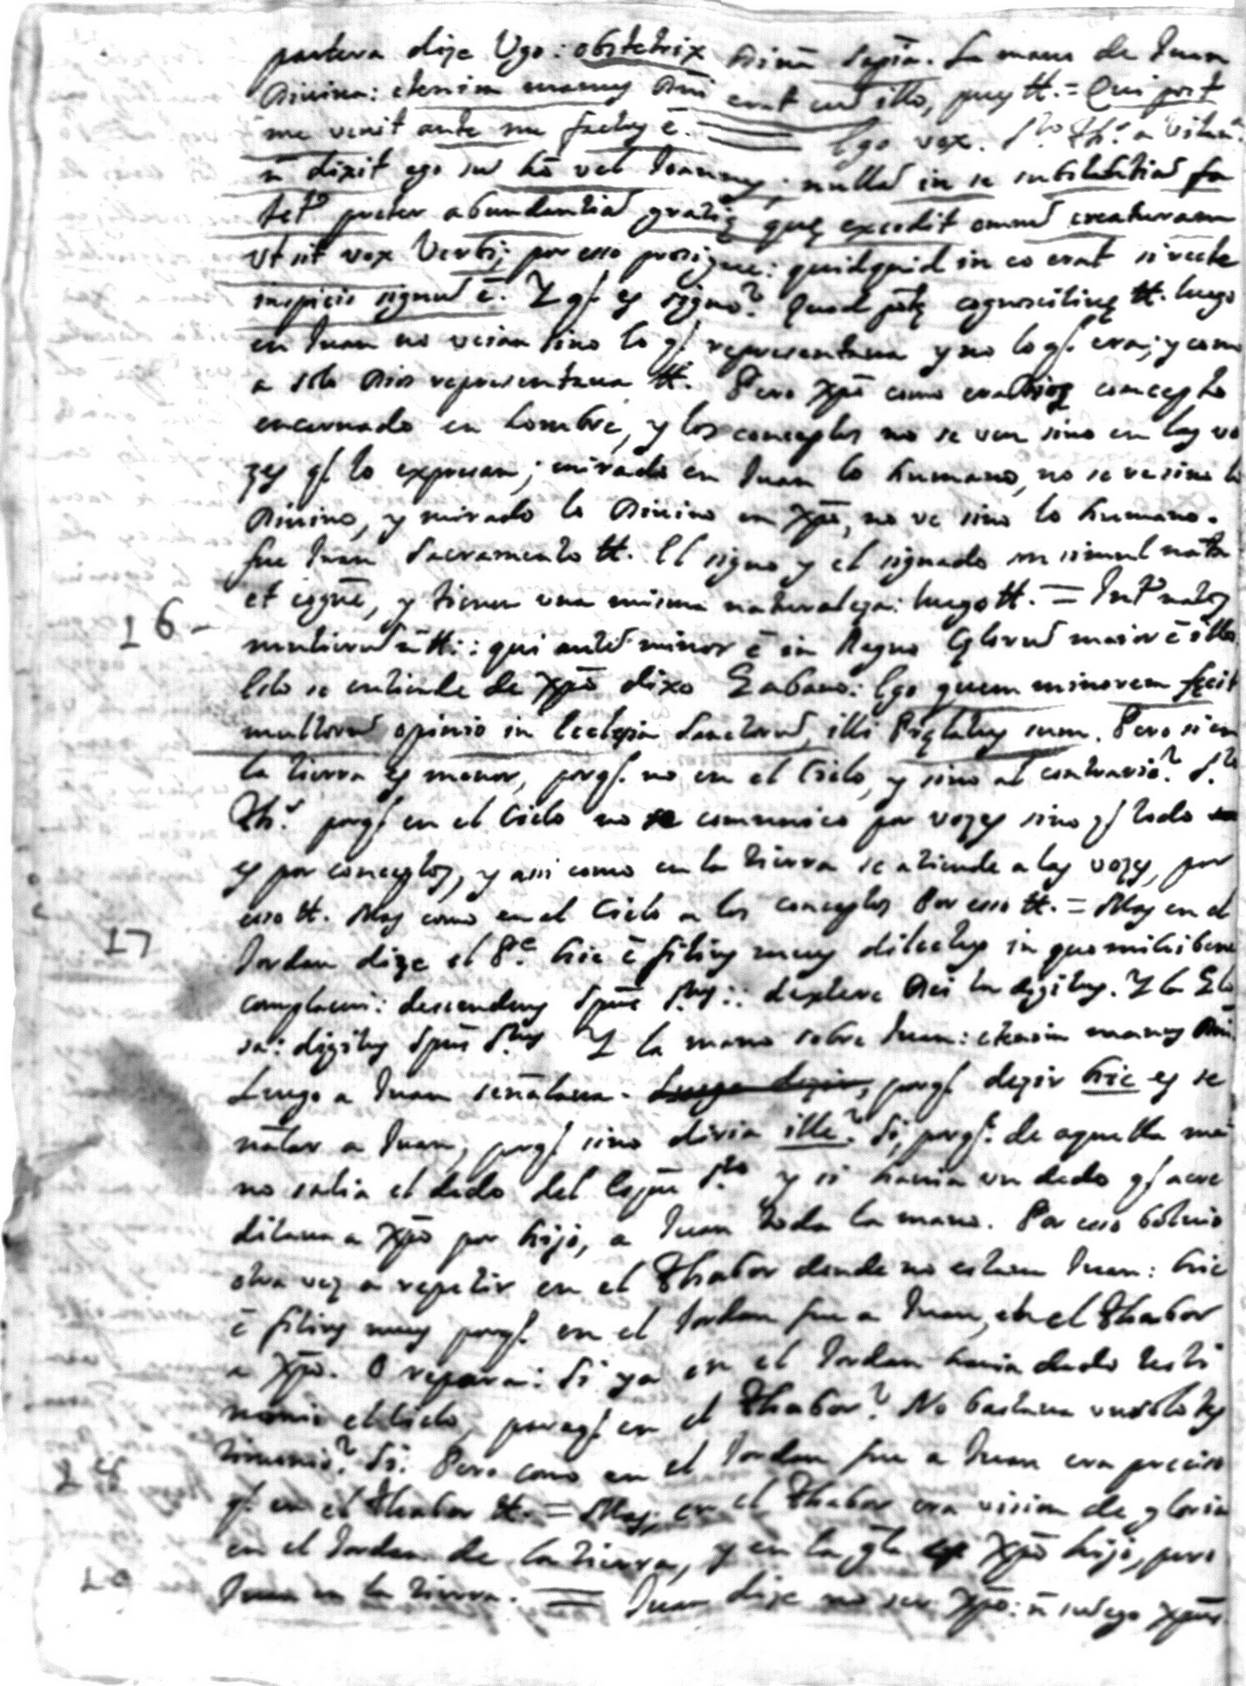 partera dize Vgo: obstetrix diuina sapia. La mano de Juan
Diuina: etenim manus Dni erat cum illo, pues tt. = Qui post
me venit ante me factus ē. Ego vox. Sto Ths a Villan
n dixit ego su hō vel Joannes, nullā in se substātiad fa
tetr preter abundantiad gratię quę excedit omned creaturam
vt sit vox Verbi; por esso prosigue: quidquid in eo erat si recte
inspicis signud ē. Y q es signo? Quod cognoscitiuę tt. luego
en Juan no veian sino lo q representaua y no lo q era; y como
a solo Dios representaua tt. Pero Xpō como era concepto
encarnado en hombre, y los conceptos no se ven sino en las vo
zes q lo expresan; mirado en Juan lo humano, no se ve sino lo
Diuino, y mirado lo Diuino en Xpō, no ve sino lo humano.
fue Juan Sacramento tt. El signo y el signado sn simul natu
et cogne, y tienen una misma naturaleza: luego tt. = Intr natos
16- mulierud n tt:: qui auted minor ē in Regno Cęlorud maior ē illo
Esto se entiende de Xpō dixo Rabano: Ego quem minorem fęcit
multorud opinio in Eclesia Sanctorud, illi Pręlatus sum. Pero si en
la tierra es menor, porq no en el Cielo, y sino al contrario? Sto
Ths porq en el Cielo no se comunica por vozes sino q todo
es por conceptos, y asi como en la tierra se atiende a las vozes, por
esso tt. Mas como en el Cielo a los conceptos Por esso tt. = Mas en el
17 Jordan dize el Pe hic ē filius meus dilectus in quo mihi bene
complacui: descendens Spus Stus:: dextere Dei tu digitus. Y la Glo
sa: digitus Spus Stus Y la mano sobre Juan: etenim manus Dni
Luego a Juan señalaua. Luego dezir, porq dezir hic es se
ñalar a Juan, porq sino diria ille? Si, porq de aquella ma
no salia el dedo del Espu Sto y si hauia un dedo q acre
ditaua a Xpō por hijo, a Juan toda la mano. Por esso boluio
otra vez a repetir en el Thabor donde no estaua Juan: hic
ē filius meus porq en el Jordan fue a Juan, en el Thabor
a Xpō. O repara: Si ya en el Jordan hauia dado testi
monio el Cielo, paraq en el Thabor? No bastaua un solo tes
timonio? Si. Pero como en el Jordan fue a Juan era preciso
q en el Thabor tt. = Mas, en el Thabor era vision de gloria
en el Jordan de la tierra, y en la gla es Xpō hijo, pero
Juan en la tierra. = Juan dize no ser Xpō: n sud ego Xpus